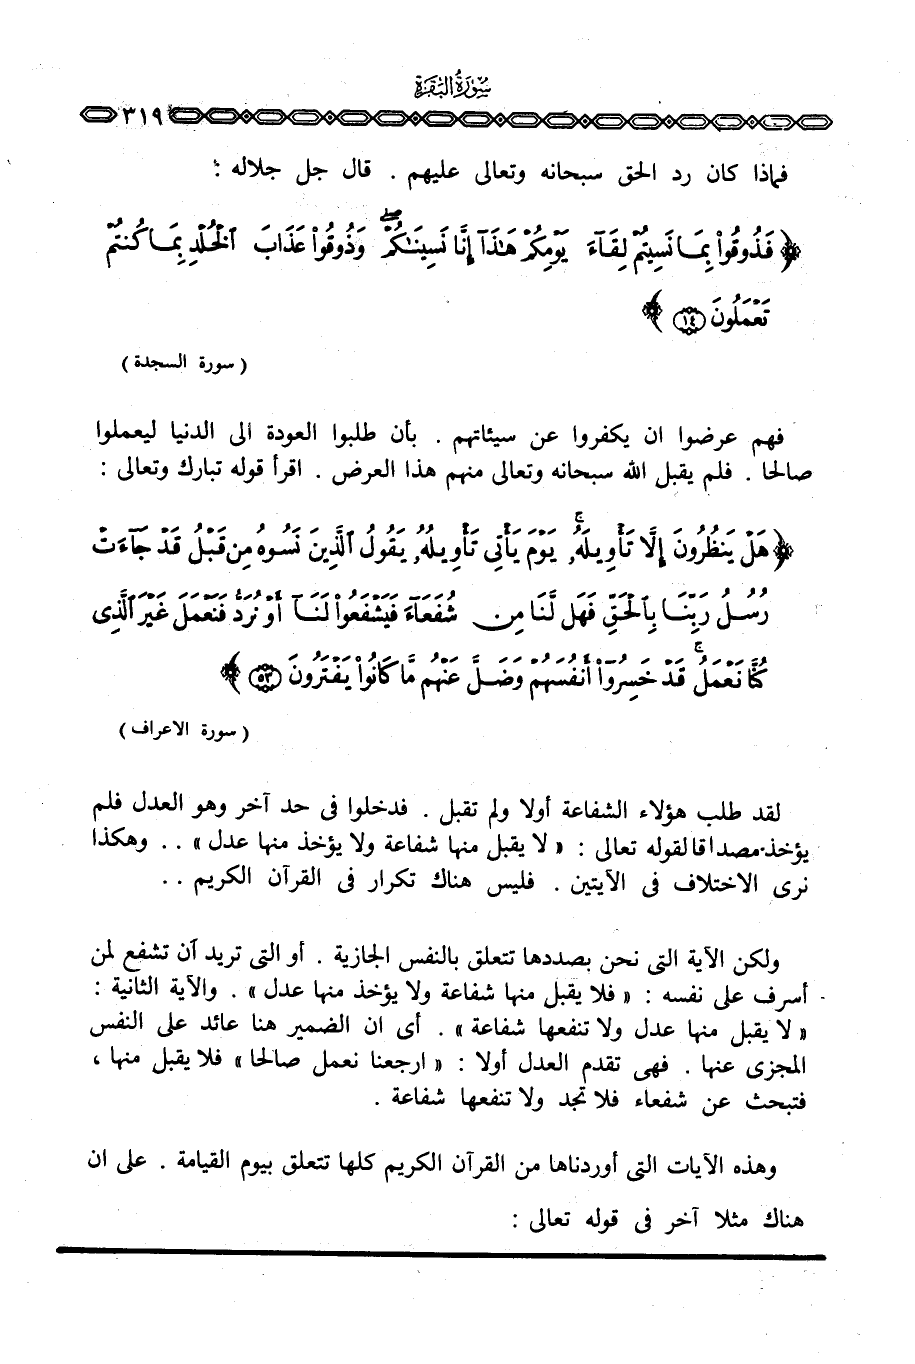 سورة البقرة
٣١٩
فماذا كان رد الحق سبحانه وتعالى عليهم . قال جل جلاله :
﴿ فَذُوقُوا۟ بِمَا نَسِيتُمْ لِقَآءَ يَوْمِكُمْ هَـٰذَآ إِنَّا نَسِينَـٰكُمْ ۖ وَذُوقُوا۟ عَذَابَ ٱلْخُلْدِ بِمَا كُنتُمْ
تَعْمَلُونَ ١٤ ﴾
( سورة السجدة )
فهم عرضوا ان يكفروا عن سيئاتهم . بأن طلبوا العودة الى الدنيا ليعملوا
صالحا . فلم يقبل الله سبحانه وتعالى منهم هذا العرض . اقرأ قوله تبارك وتعالى :
﴿ هَلْ يَنظُرُونَ إِلَّا تَأْوِيلَهُۥ ۚ يَوْمَ يَأْتِى تَأْوِيلُهُۥ يَقُولُ ٱلَّذِينَ نَسُوهُ مِن قَبْلُ قَدْ جَآءَتْ
رُسُلُ رَبِّنَا بِٱلْحَقِّ فَهَل لَّنَا مِن شُفَعَآءَ فَيَشْفَعُوا۟ لَنَآ أَوْ نُرَدُّ فَنَعْمَلَ غَيْرَ ٱلَّذِى
كُنَّا نَعْمَلُ ۚ قَدْ خَسِرُوٓا۟ أَنفُسَهُمْ وَضَلَّ عَنْهُم مَّا كَانُوا۟ يَفْتَرُونَ ٥٣ ﴾
( سورة الاعراف )
لقد طلب هؤلاء الشفاعة أولا ولم تقبل . فدخلوا فى حد آخر وهو العدل فلم
يؤخذ مصداقا لقوله تعالى : « لا يقبل منها شفاعة ولا يؤخذ منها عدل » . . وهكذا
نرى الاختلاف فى الآيتين . فليس هناك تكرار فى القرآن الكريم . .
ولكن الآية التى نحن بصددها تتعلق بالنفس الجازية . أو التى تريد أن تشفع لمن
أسرف على نفسه : « فلا يقبل منها شفاعة ولا يؤخذ منها عدل » . والآية الثانية :
« لا يقبل منها عدل ولا تنفعها شفاعة » . أى ان الضمير هنا عائد على النفس
المجزى عنها . فهى تقدم العدل أولا : « ارجعنا نعمل صالحا » فلا يقبل منها ،
فتبحث عن شفعاء فلا تجد ولا تنفعها شفاعة .
وهذه الآيات التى أوردناها من القرآن الكريم كلها تتعلق بيوم القيامة . على ان
هناك مثلا آخر فى قوله تعالى :